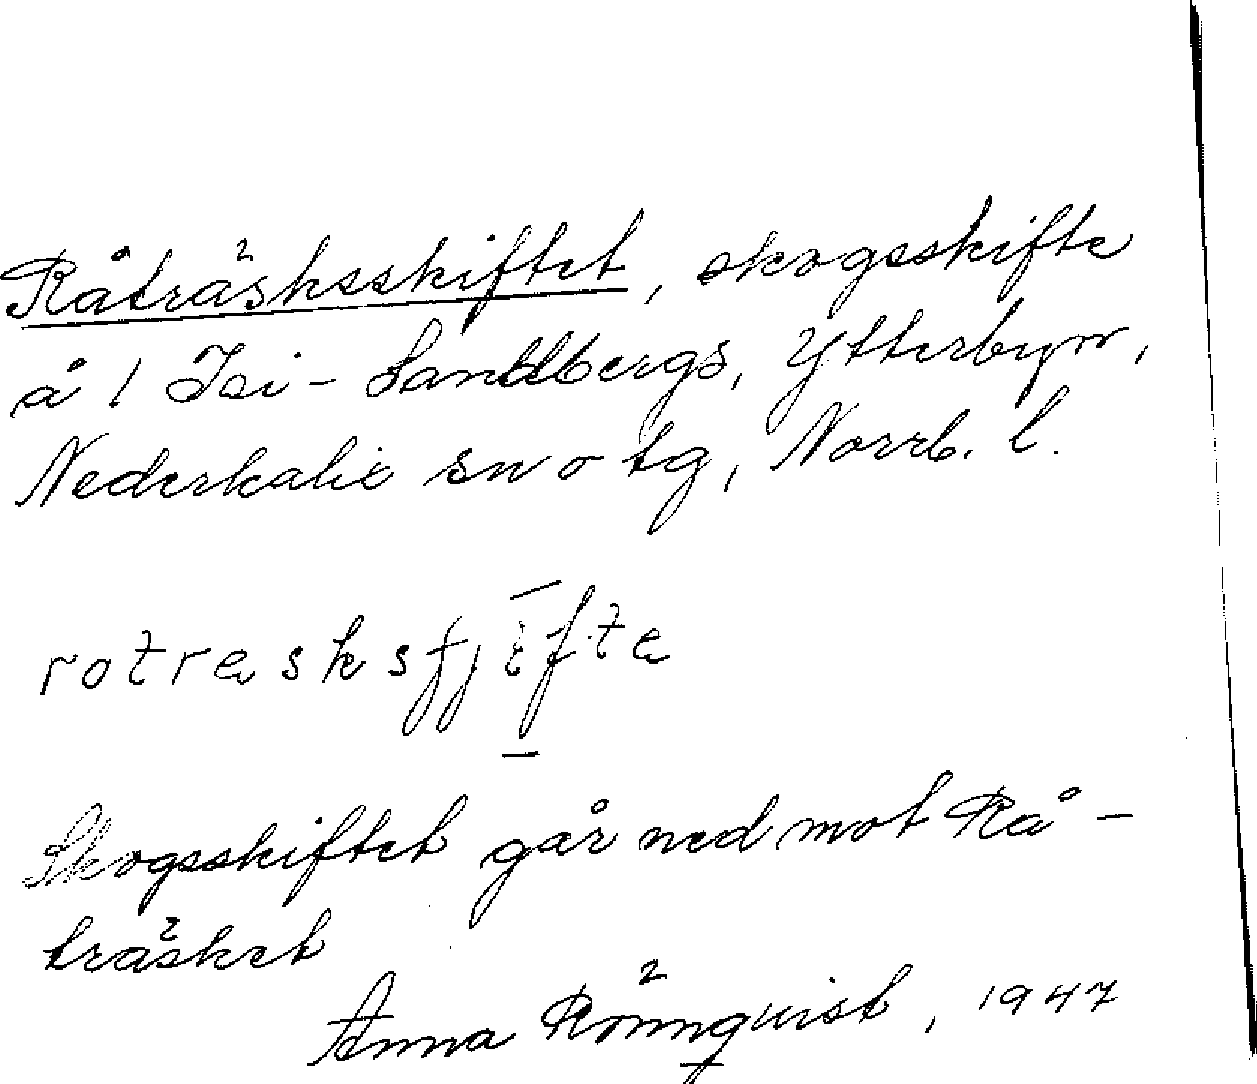 Råträsksskiftet, skogsskifte
å 1 Isi-Sandbergs, Ytterbyn,
Nederkalix sn o tg, Norrb. l.
rotresksʃjifte
Skogsskiftet går ned mot Rå-
träsket
Anna Rönnquist, 1947